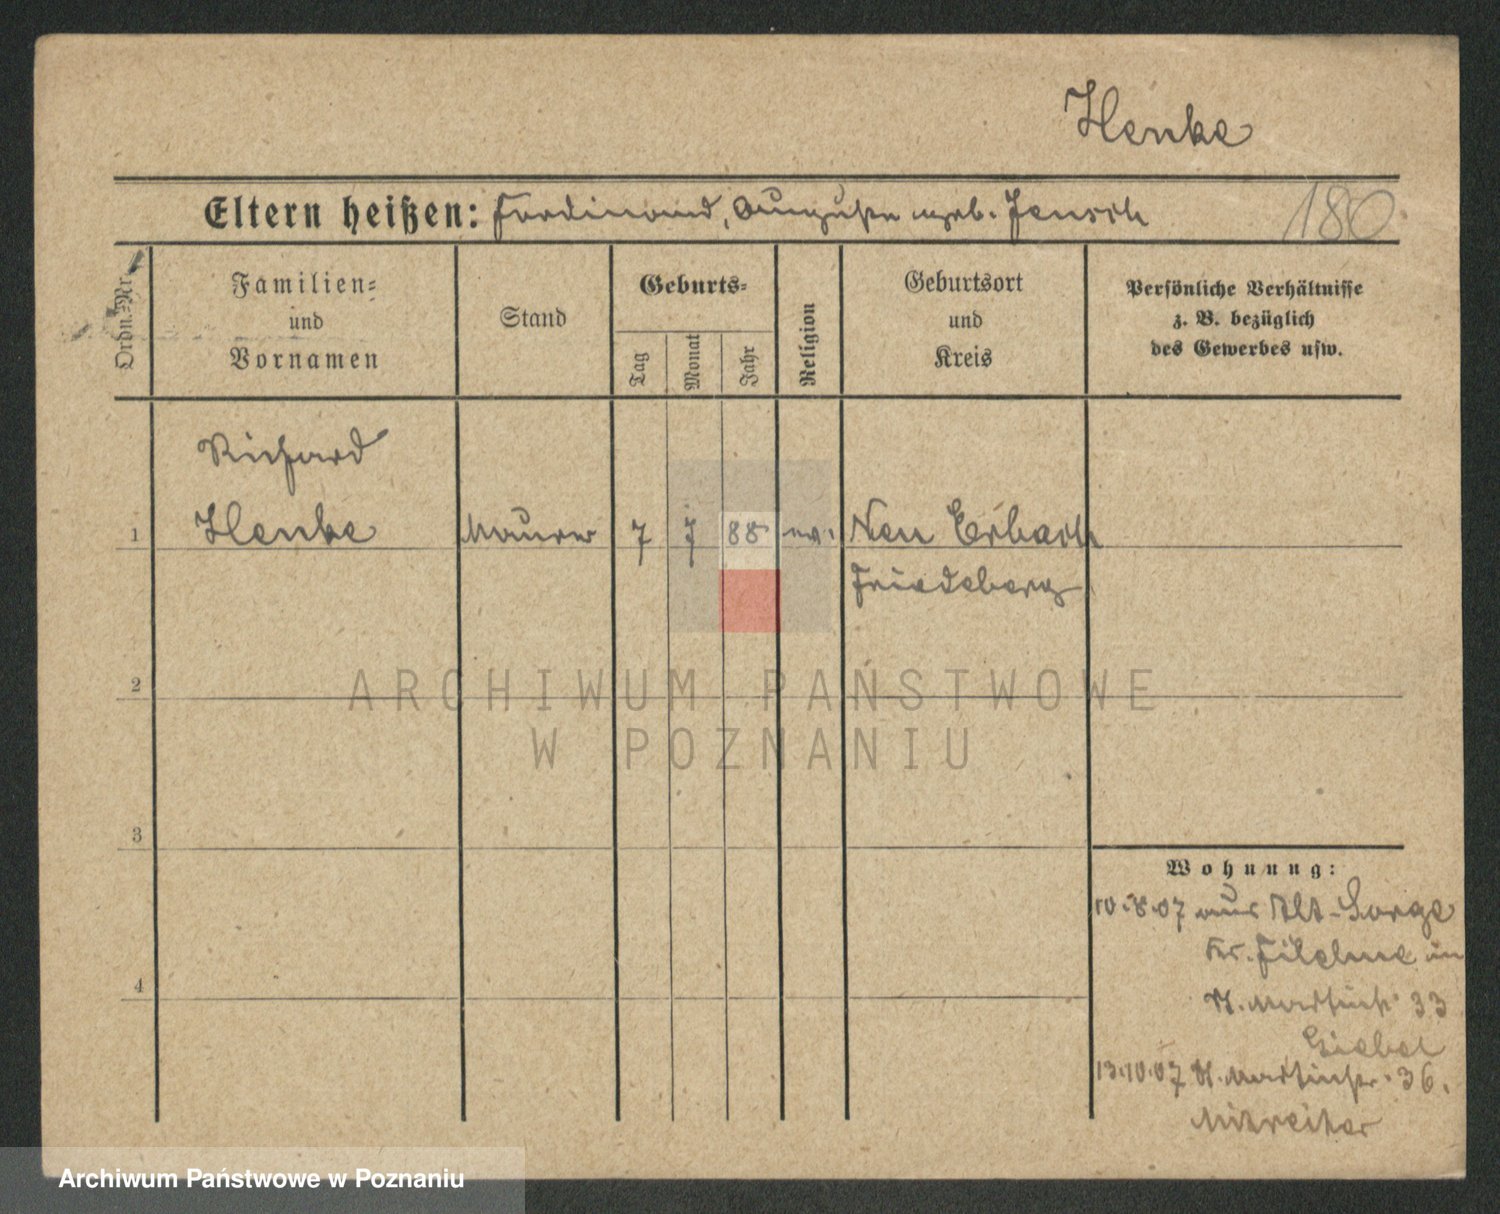 Henke
Eltern heißen: Ferdinand, Auguste geb. Jensch
180
Ordn.-Nr.
Familien-
und
Vornamen
Stand
Geburts-
Tag
Monat
Jahr
Religion
Geburtsort
und
Kreis
Persönliche Verhältnisse
z. B. bezüglich
des Gewerbes usw.
Richard
1 Henke Maurer 7 7 88 ev. Neu Erbach
Friedeberg
2
ARCHIWUM PAŃSTWOWE
W POZNANIU
3
Wohnung:
10.8.07 aus Alt-Sorge
Kr. Filehne in
St. Martinstr. 33
Giebel
4
13.10.07 St. Martinstr. 36.
Archiwum Państwowe w Poznaniu